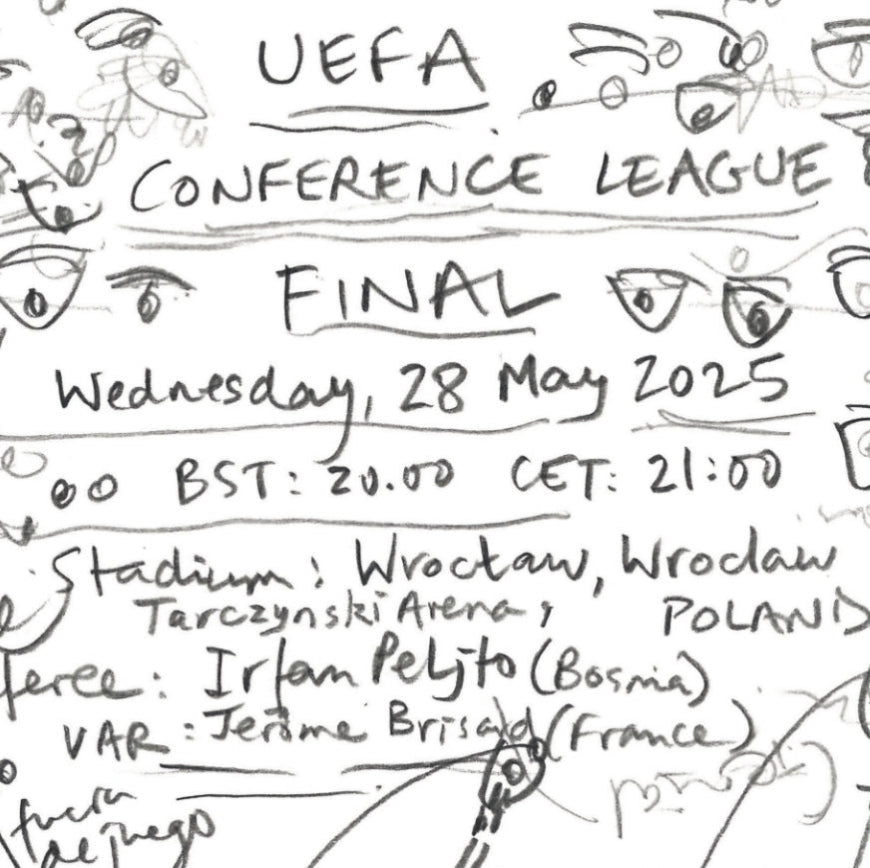 UEFA
CONFERENCE LEAGUE
FINAL
Wednesday, 28 May 2025
BST: 20.00 CET: 21:00
Stadium: Wrocław, Wroclaw
Tarczynski Arena, POLAND
feree: Irfan Peljto (Bosnia)
VAR: Jerôme Brisard (France)
fuera
de juego